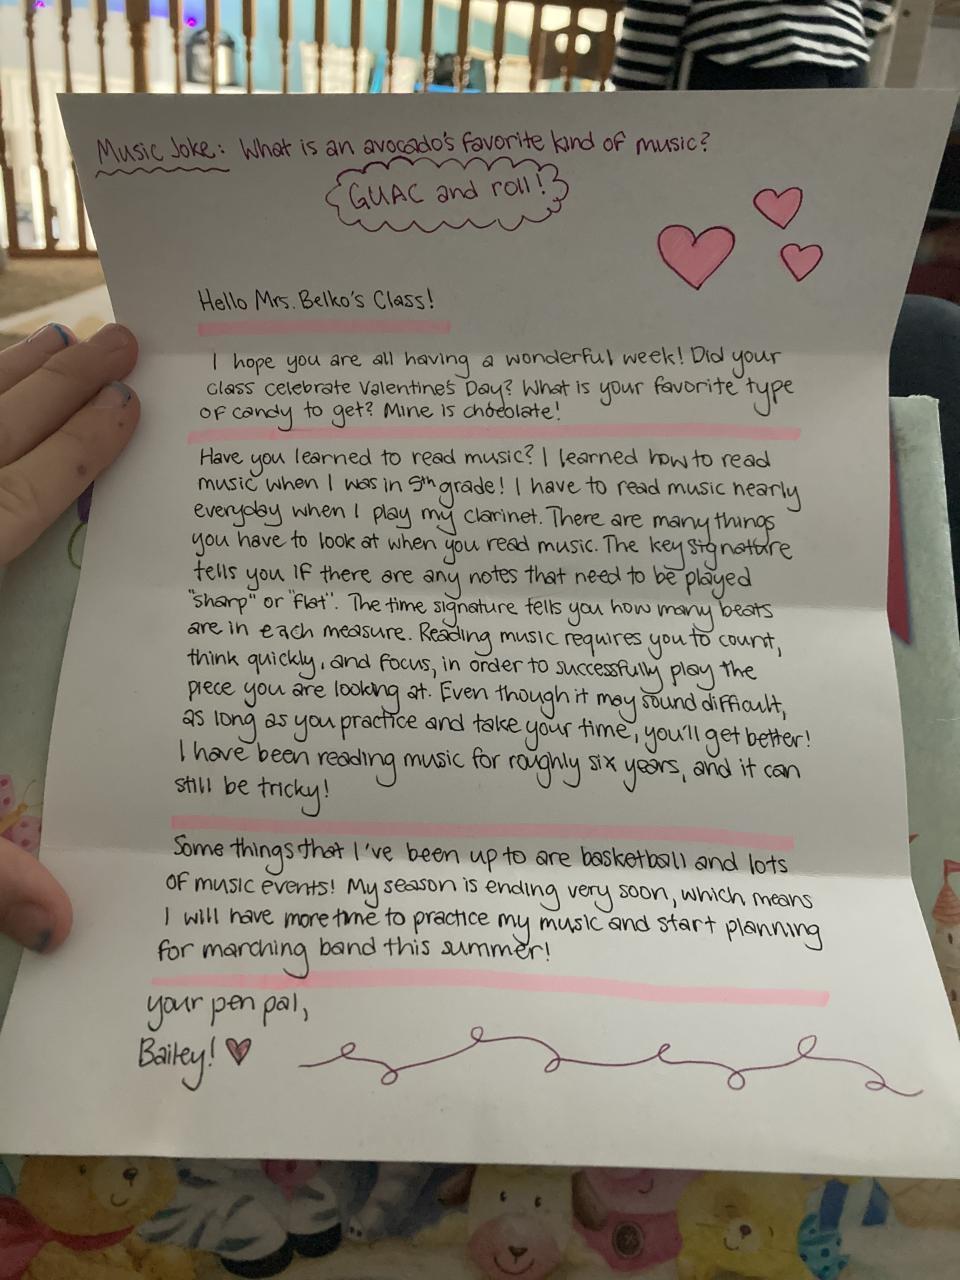 Music Joke: What is an avocado's favorite kind of music?
GUAC and roll!
Hello Mrs. Belko's Class!
I hope you are all having a wonderful week! Did your
class celebrate Valentine's Day? What is your favorite type
of candy to get? Mine is chocolate!
Have you learned to read music? I learned how to read
music when I was in 5th grade! I have to read music nearly
everyday when I play my clarinet. There are many things
you have to look at when you read music. The key signature
tells you if there are any notes that need to be played
"sharp" or "flat". The time signature tells you how many beats
are in each measure. Reading music requires you to count,
think quickly, and focus, in order to successfully play the
piece you are looking at. Even though it may sound difficult,
as long as you practice and take your time, you'll get better!
I have been reading music for roughly six years, and it can
still be tricky!
Some things that I've been up to are basketball and lots
of music events! My season is ending very soon, which means
I will have more time to practice my music and start planning
for marching band this summer!
your pen pal,
Bailey!